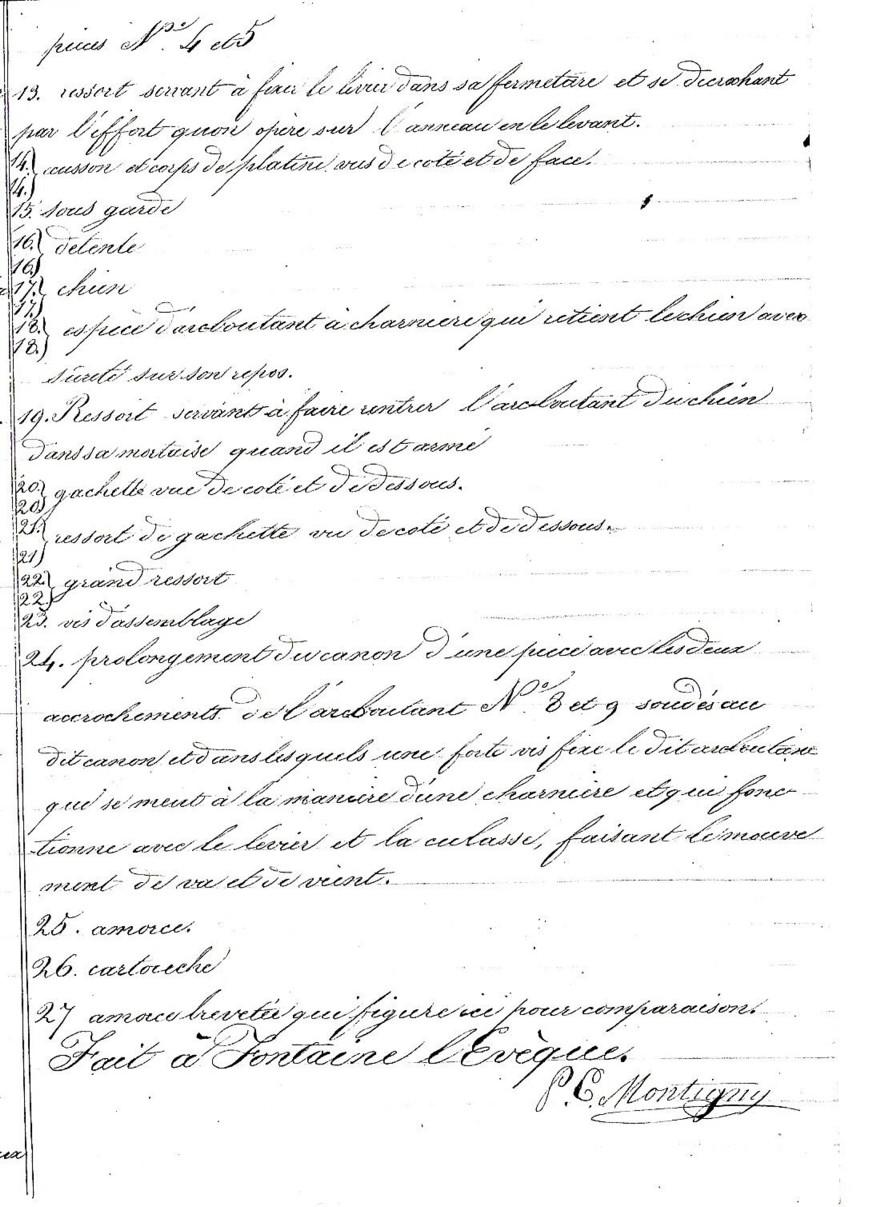 pieces Nos. 4 et 5
13. ressort servant à fixer le levier dans sa fermeture et se decrochant
par l'éffort qu'on opère sur l'anneau en le levant.
14.} ecusson et corps de platine vus de coté et de face.
14.}
15. sous garde
16.} detente
16}
17.} chien
17.}
18.} espèce d'arcboutant à charniere qui retient le chien avec
18.}
sûreté sur son repos.
19. Ressort servant à faire rentrer l'arcboutant du chien
dans sa mortaise quand il est armé
20.} gachette vue de coté et de dessous.
20}
21.} ressort de gachette vu de coté et de dessous.
21}
22} grand ressort
22}
23. vis d'assemblage
24. prolongement du canon d'une piece avec les deux
accrochements de l'arcboutant Nos. 8 et 9 soudés au
dit canon et dans lesquels une forte vis fixe le dit arcboutant
qui se meut à la maniere d'une charniere et qui fonc-
tionne avec le levier et la culasse, faisant le mouve
ment de va et de vient.
25. amorce.
26. cartouche
27 amorce brevetée qui figure ici pour comparaison.
Fait à Fontaine l'Evèque.
P. C. Montigny